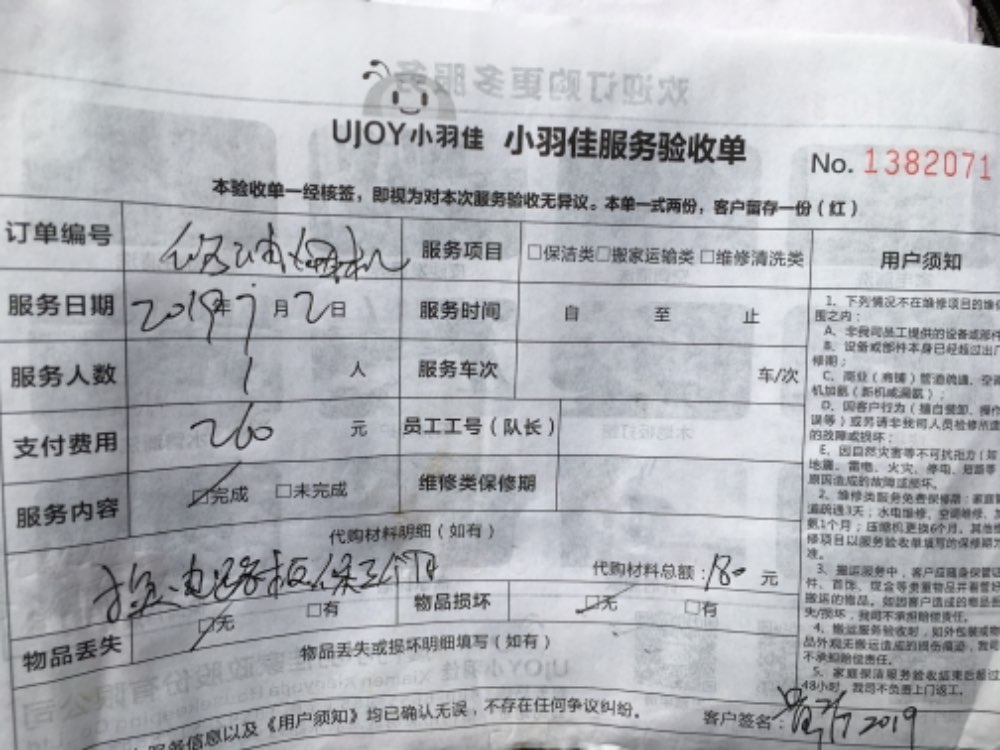 欢迎订购更多服务
UJOY小羽佳 小羽佳服务验收单
No. 1382071
本验收单一经核签，即视为对本次服务验收无异议。本单一式两份，客户留存一份（红）
订单编号 服务项目 □保洁类□搬家运输类□维修清洗类 用户须知
服务日期 2019年7月2日 服务时间 自 至 止
服务人数 1 人 服务车次 车/次
支付费用 260 元 员工工号（队长）
服务内容 □完成 □未完成 维修类保修期
代购材料明细（如有）
换电路板保三个月 代购材料总额：180 元
物品丢失 □无 □有 物品损坏 □无 □有
物品丢失或损坏明细填写（如有）
服务信息以及《用户须知》均已确认无误，不存在任何争议纠纷。
客户签名： 2019
1、下列情况不在维修项目的维
围之内：
A、非我司员工提供的设备或部件
B、设备或部件本身已经超过出厂
修期；
C、商业（商铺）管道疏通、空调
机加氨（新机或漏氨）；
D、因客户行为（擅自装卸、操作
误等）或另请非我司人员检修所造
的故障或损坏；
E、因自然灾害等不可抗拒力（如
地震、雷电、火灾、停电、短路等
原因造成的故障或损坏。
2、维修类服务免费保修期：家庭管
道疏通3天；水电维修、空调维修、
氨1个月；压缩机更换6个月。其他维
修项目以服务验收单填写的保修期为
准。
3、搬运服务中，客户应随身保管证
件、首饰、现金等贵重物品并看管好
搬运的物品。如因客户造成的物品丢
失/损坏，我司不承担赔偿责任。
4、搬运服务验收时，如外包装或物
品外观无搬运造成的损伤痕迹，我司
不承担赔偿责任。
5、家庭保洁服务验收结束后超过
48小时，我司不负责上门返工。